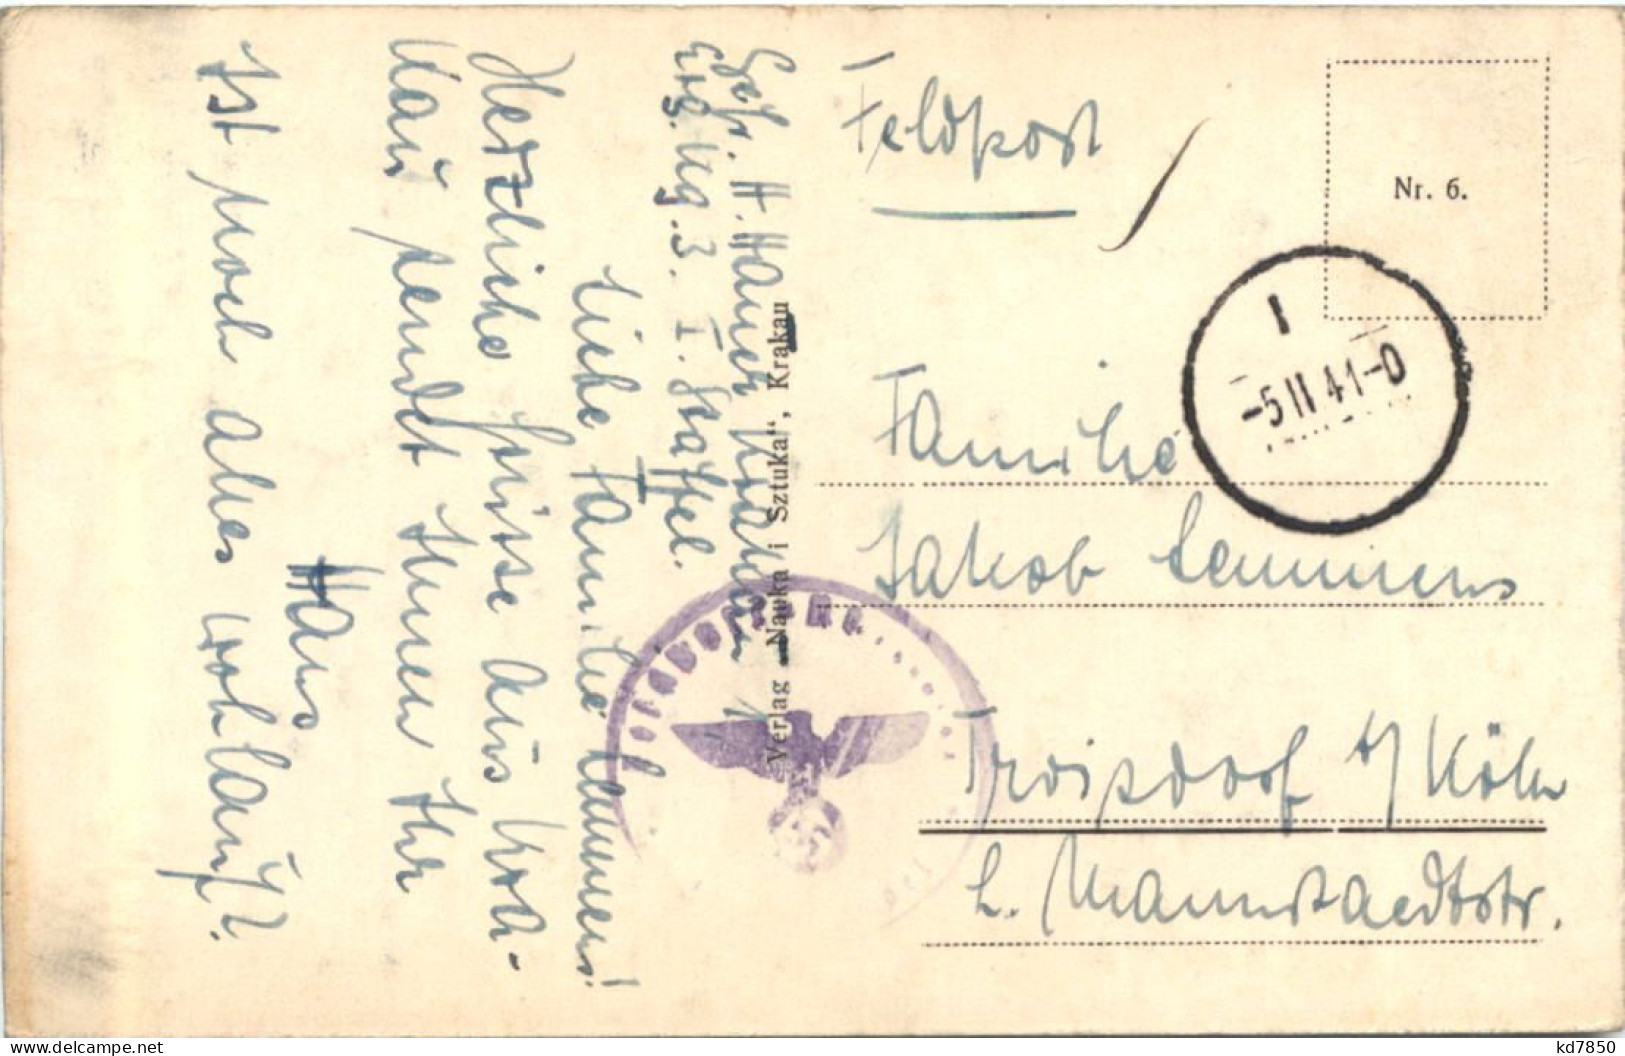 Gefr. H. Hauer Krakau
Erg. Kg. 3. I. Staffel.
Liebe Familie Lammers!
Herzliche Grüsse aus Kra-
kau sendet Ihnen Ihr
Hans
Ist noch alles wohlauf?
Verlag „Nauka i Sztuka“, Krakau
Feldpost
Nr. 6.
I
-5 II 41-0
Familie
Jakob
Troisdorf b/ Köln
L. Mannstaedtstr.
kd7850